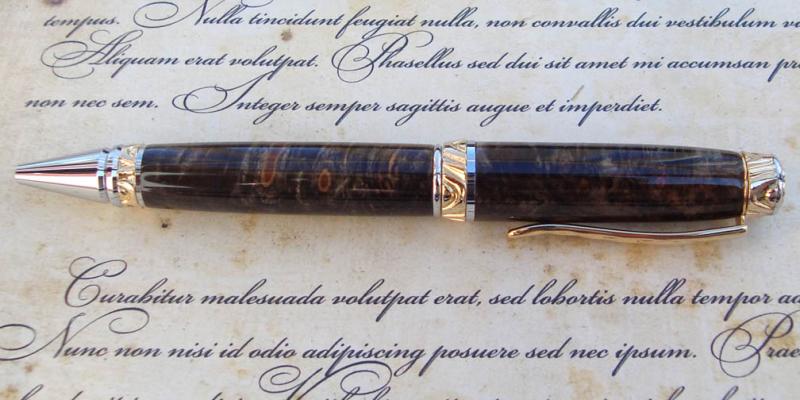 tempus. Nulla tincidunt feugiat nulla, non convallis dui vestibulum
Aliquam erat volutpat. Phasellus sed dui sit amet mi accumsan
non nec sem. Integer semper sagittis augue et imperdiet.
Curabitur malesuada volutpat erat, sed lobortis nulla tempor
Nunc non nisi id odio adipiscing posuere sed nec ipsum.